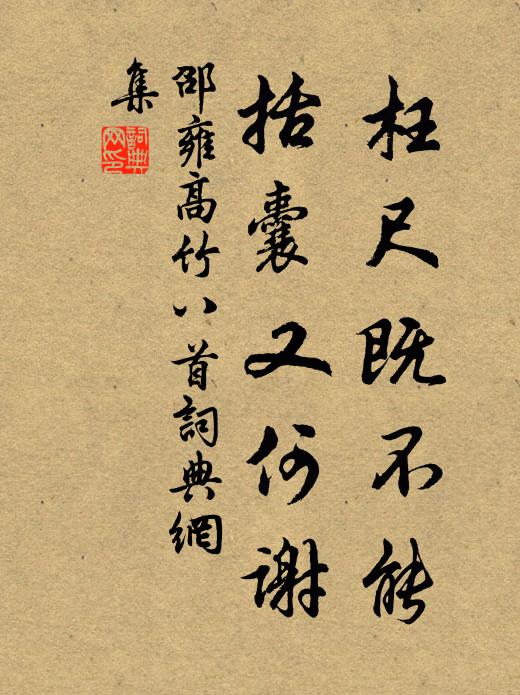 枉尺既不能
括囊又何謝
邵雍高竹八首詞典網
集
詞典
网印